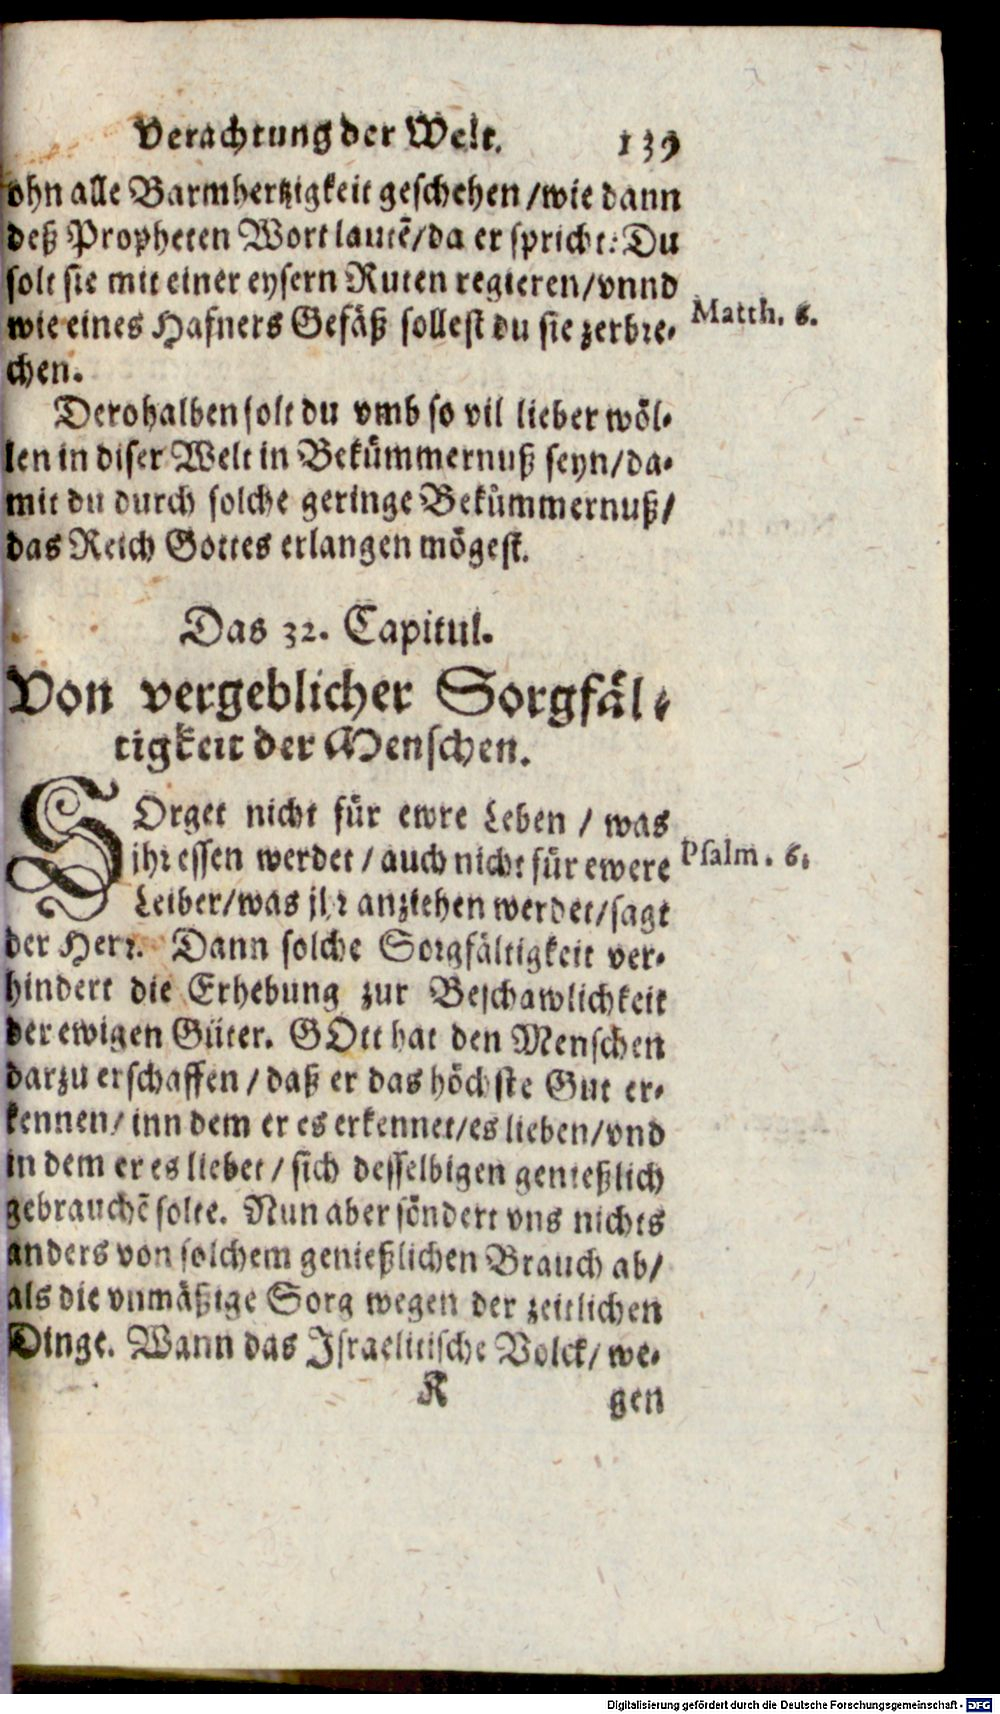 Verachtung der Welt. 139
ohn alle Barmhertzigkeit geschehen / wie dann
deß Propheten Wort lautẽ / da er spricht: Du
solt sie mit einer eysern Ruten regieren / vnnd
wie eines Hafners Gefäß sollest du sie zerbre-
chen.
Matth. 6.
Derohalben solt du vmb so vil lieber wöl-
len in diser Welt in Bekümmernuß seyn / da-
mit du durch solche geringe Bekümmernuß /
das Reich Gottes erlangen mögest.
Das 32. Capitul.
Von vergeblicher Sorgfäl-
tigkeit der Menschen.
SOrget nicht für ewre Leben / was
jhr essen werdet / auch nicht für ewere
Psalm. 6.
Leiber / was jhr anziehen werdet / sagt
der Herr. Dann solche Sorgfältigkeit ver-
hindert die Erhebung zur Beschawlichkeit
der ewigen Güter. GOtt hat den Menschen
darzu erschaffen / daß er das höchste Gut er-
kennen / inn dem er es erkennet / es lieben / vnd
in dem er es liebet / sich desselbigen genießlich
gebrauchẽ solte. Nun aber söndert vns nichts
anders von solchem genießlichen Brauch ab /
als die vnmäßige Sorg wegen der zeitlichen
Dinge. Wann das Israelitische Volck / we-
K gen
Digitalisierung gefördert durch die Deutsche Forschungsgemeinschaft - DFG